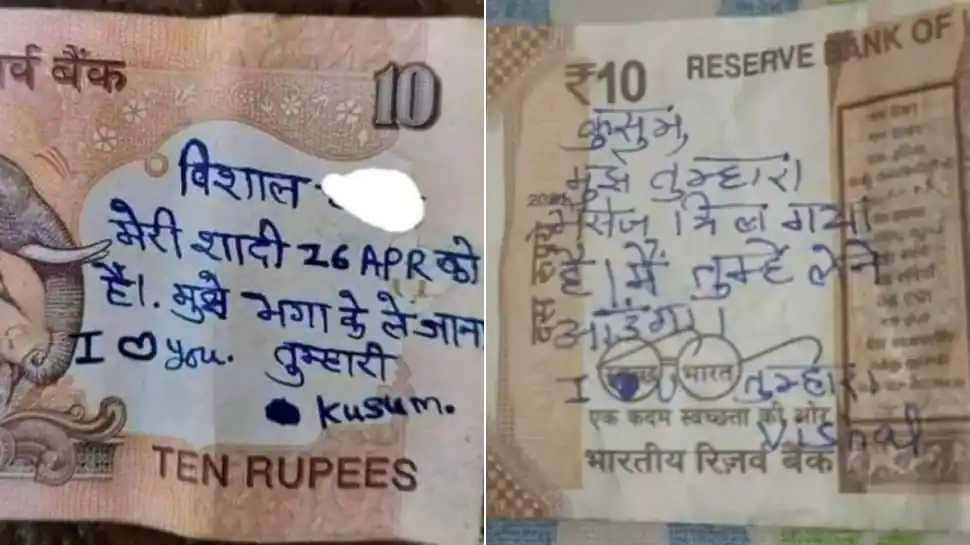 र्व बैंक
10
विशाल
मेरी शादी 26 APR को
है। मुझे भगा के ले जाना
I you. तुम्हारी
Kusum.
TEN RUPEES
₹10 RESERVE BANK OF
कुसुम,
मुझे तुम्हारा
मैसेज मिल गया
है। मैं तुम्हें लेने
आऊंगा।
दस रुपये
I
भारत
तुम्हारा
एक कदम स्वच्छता की ओर
Vishal
भारतीय रिज़र्व बैंक